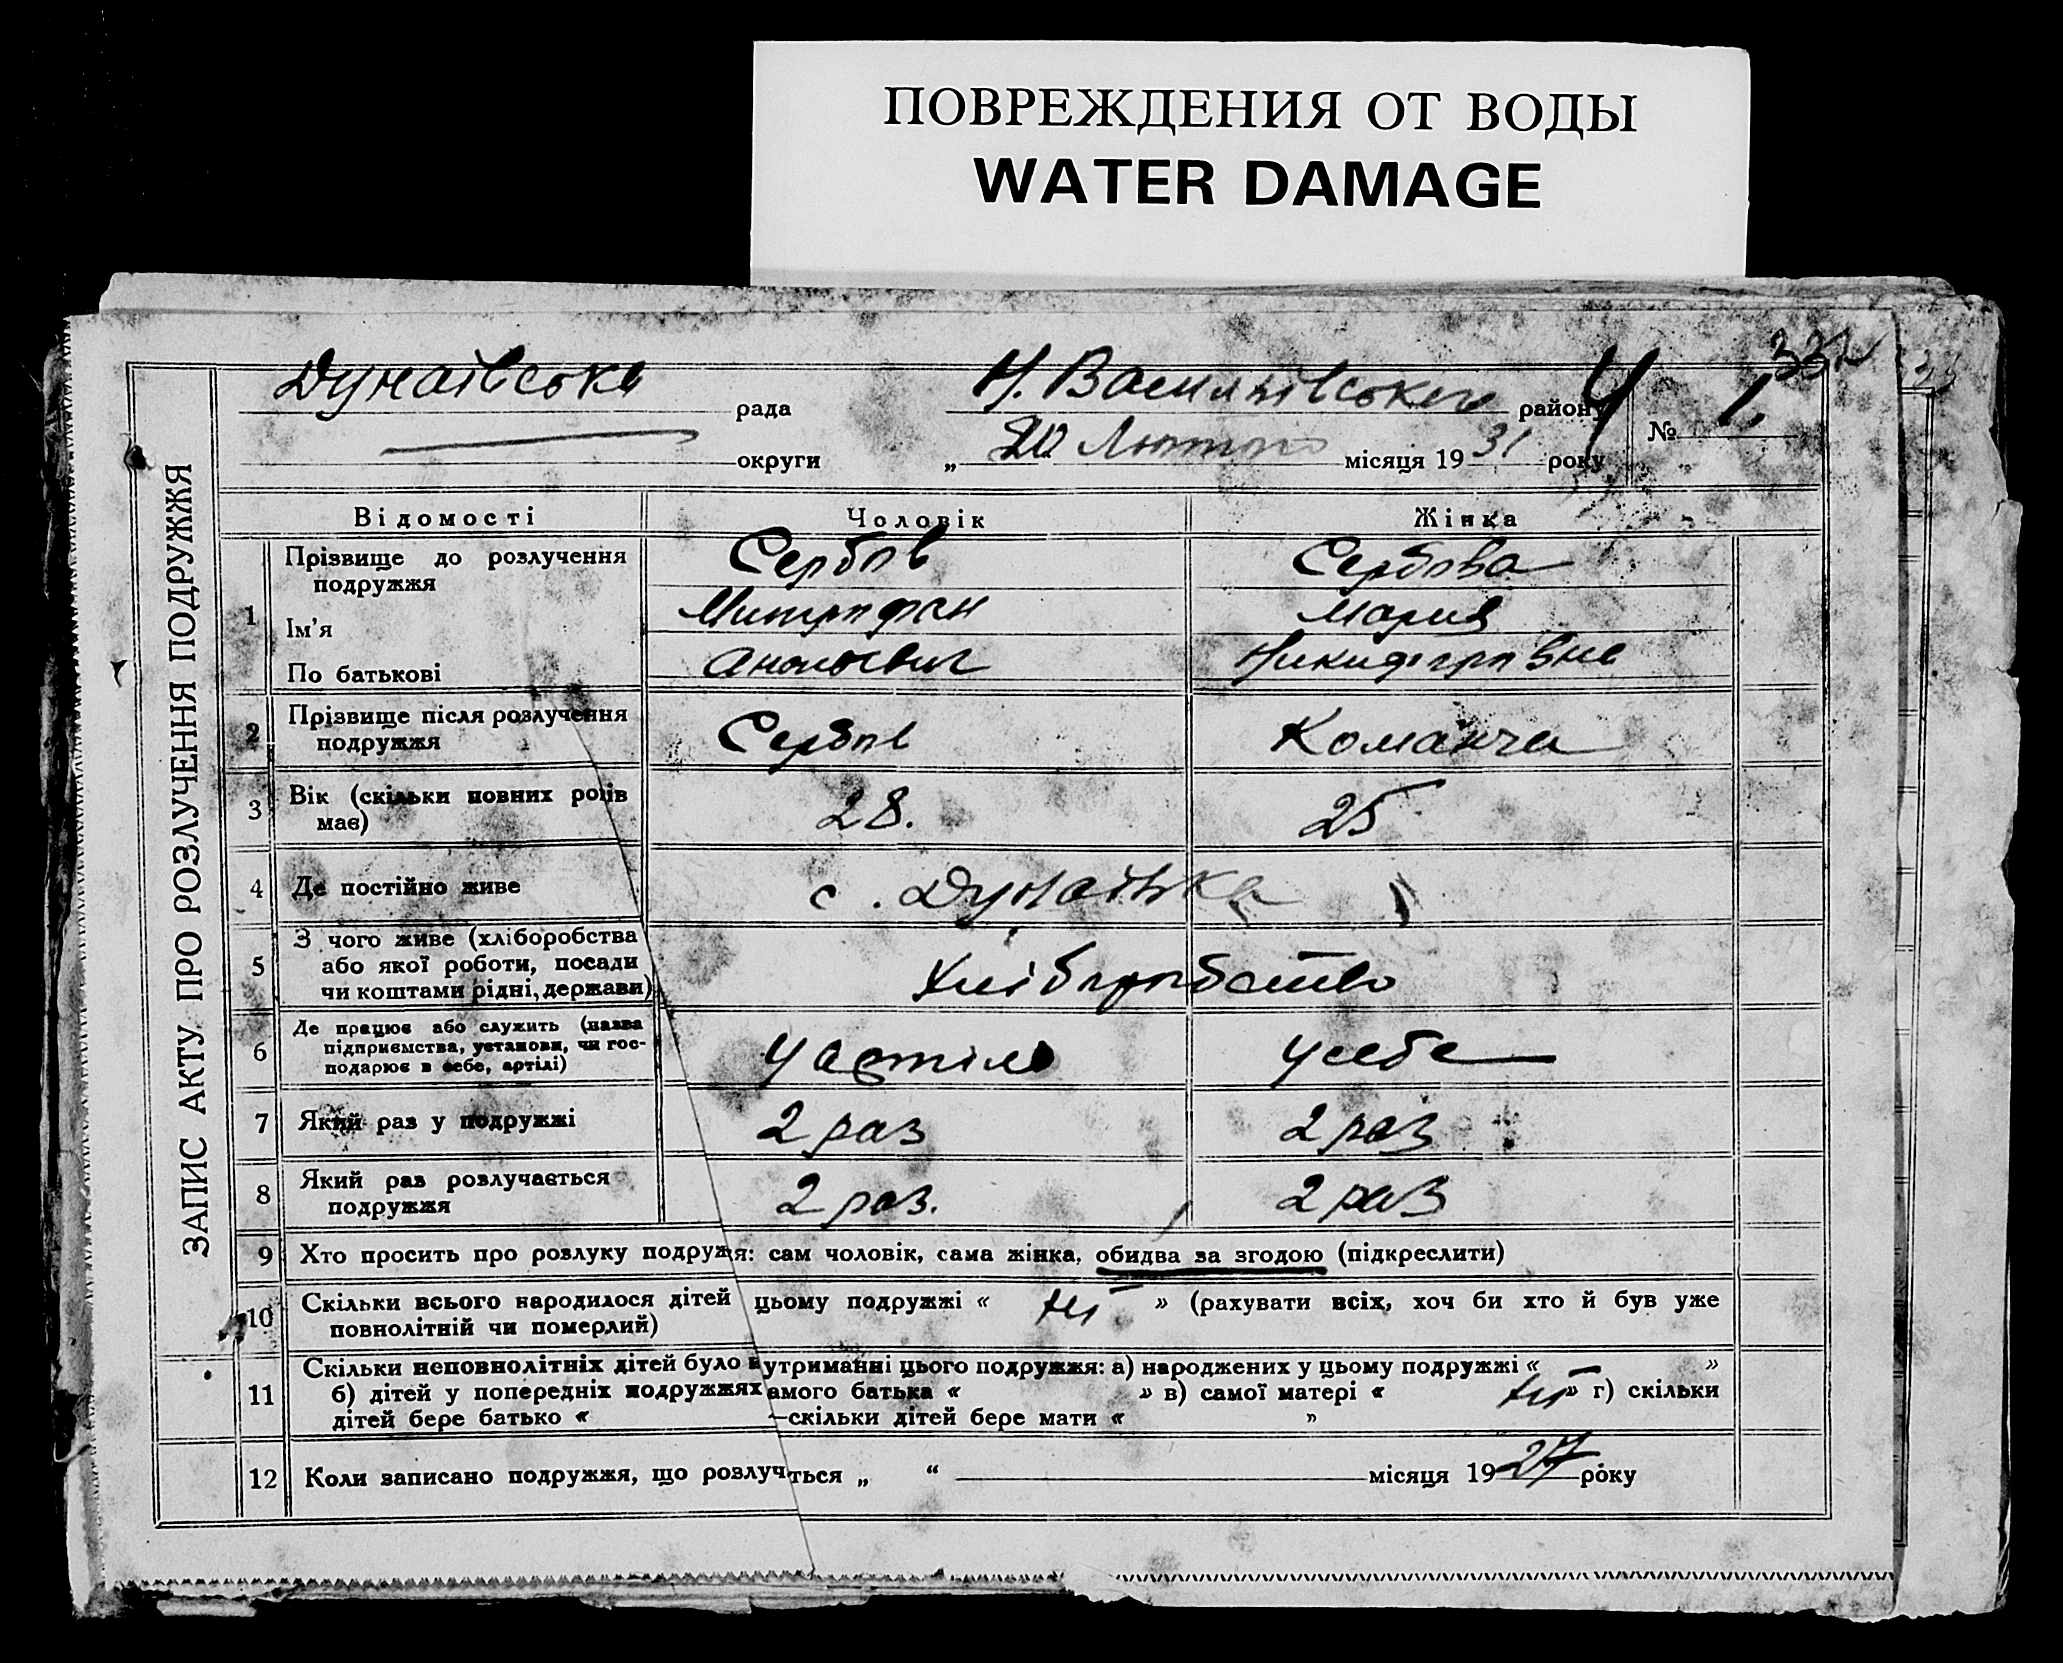 ПОВРЕЖДЕНИЯ ОТ ВОДЫ
WATER DAMAGE
332
ЗАПИС АКТУ ПРО РОЗЛУЧЕННЯ ПОДРУЖЖЯ
Дунаївська рада Н. Василівського району № 1.
округи „ 20 Лютого місяця 1931 року
Відомості Чоловік Жінка
1 Прізвище до розлучення подружжя Сербов Сербова
Ім'я Митрофан Мария
По батькові Никифоровна
2 Прізвище після розлучення
подружжя Сербов Команча
3 Вік (скільки повних років
має) 28. 25
4 Де постійно живе с. Дунаївка
5 З чого живе (хліборобства
або якої роботи, посади
чи коштами рідні, держави) Хліборобство
6 Де працює або служить (назва
підприємства, установи, чи гос-
подарює в себе, артілі) у артілі у себе
7 Який раз у подружжі 2 раз 2 раз
8 Який раз розлучається
подружжя 2 раз. 2 раз
9 Хто просить про розлуку подружя: сам чоловік, сама жінка, обидва за згодою (підкреслити)
10 Скільки всього народилося дітей цьому подружжі « ні » (рахувати всіх, хоч би хто й був уже
повнолітній чи померлий)
11 Скільки неповнолітніх дітей було утриманні цього подружжя: а) народжених у цьому подружжі « »
б) дітей у попередніх подружжях амого батька « » в) самої матері « ні » г) скільки
дітей бере батько « —скільки дітей бере мати « »
12 Коли записано подружжя, що розлучться „ “ місяця 1927 року